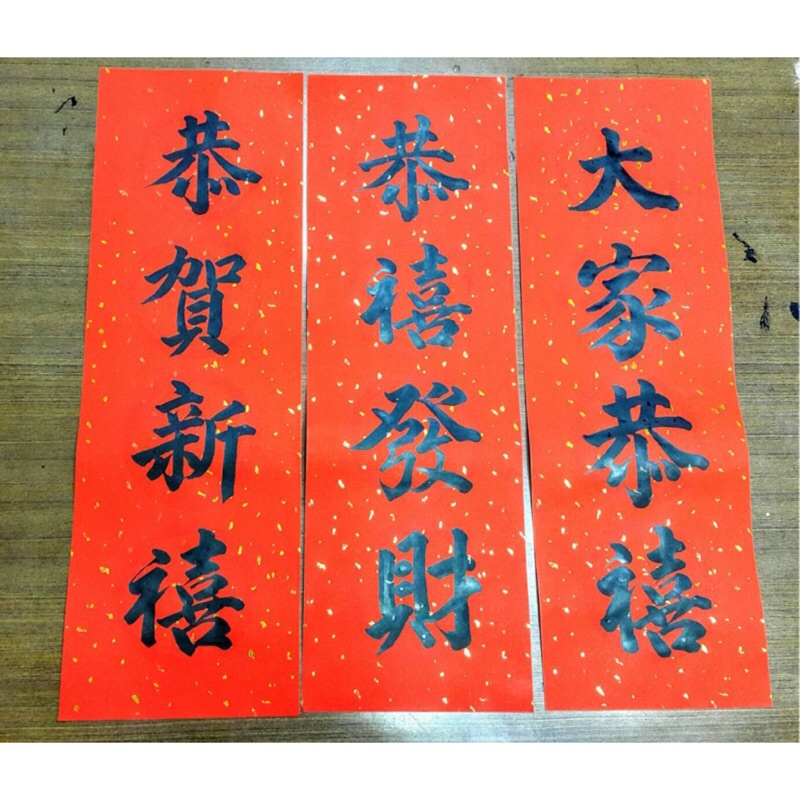 大家恭禧
恭禧發財
恭賀新禧